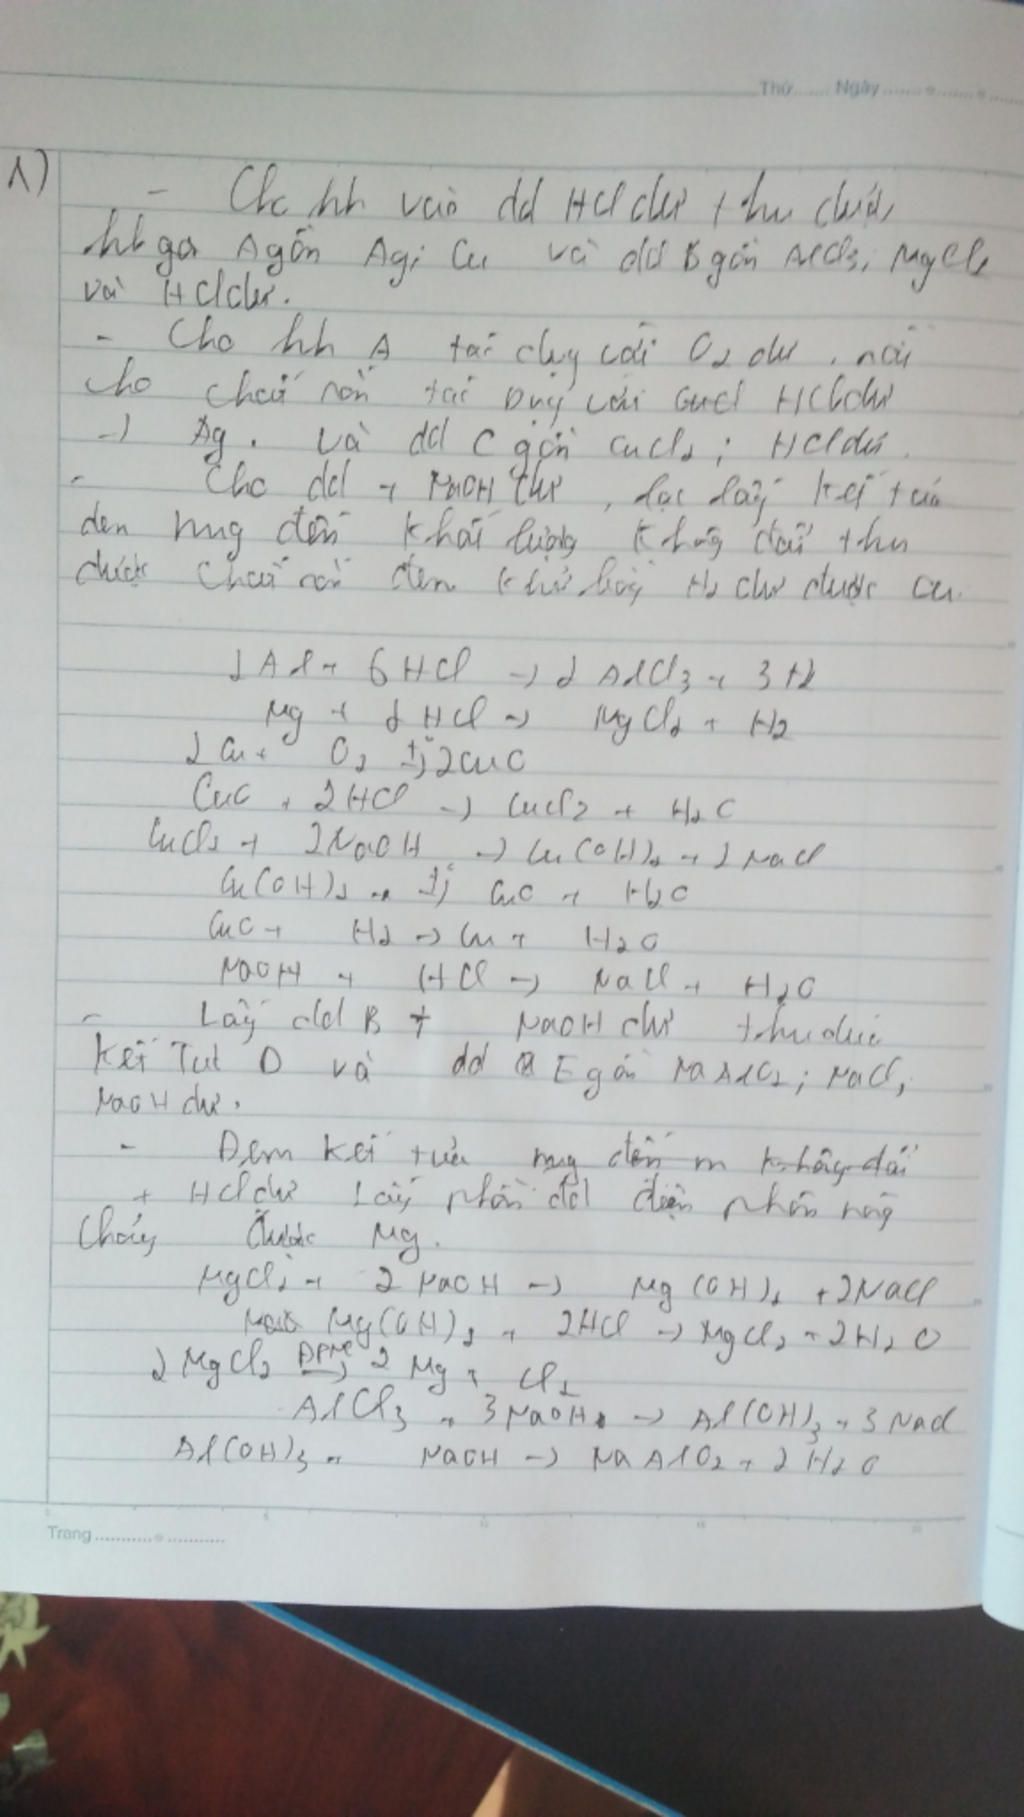 Thứ Ngày
1)
- Cho hh vào dd HCl dư thu được
hh gồm A gồm Ag; Cu và dd B gồm AlCl3; MgCl2
và HCl dư.
- Cho hh A tác dụng với O2 dư, rồi
cho chất rắn tác dụng với HCl dư
-> Ag. và dd C gồm CuCl2; HCl dư.
- Cho dd + NaOH dư, lọc lấy kết tủa
đem nung đến khối lượng không đổi thu
được chất rắn đem khử bằng H2 dư được Cu.
2Al + 6HCl -> 2AlCl3 + 3H2
Mg + 2HCl -> MgCl2 + H2
2Cu + O2 -> 2CuO
CuO + 2HCl -> CuCl2 + H2O
CuCl2 + 2NaOH -> Cu(OH)2 + 2NaCl
Cu(OH)2 -> CuO + H2O
CuO + H2 -> Cu + H2O
NaOH + HCl -> NaCl + H2O
- Lấy dd B + NaOH dư thu được
kết tủa D và dd E gồm NaAlO2; NaCl,
NaOH dư.
- Đem kết tủa nung đến m không đổi
+ HCl dư lấy phần dd điện phân nóng
chảy được Mg.
MgCl2 + 2NaOH -> Mg(OH)2 + 2NaCl
Mg(OH)2 + 2HCl -> MgCl2 + 2H2O
2MgCl2 ĐPNC -> 2Mg + Cl2
AlCl3 + 3NaOH -> Al(OH)3 + 3NaCl
Al(OH)3 + NaOH -> NaAlO2 + 2H2O
Trang